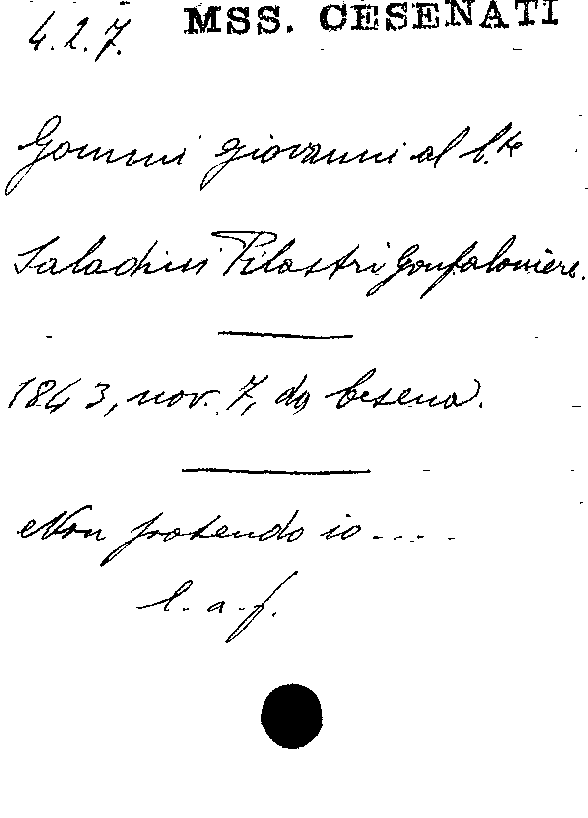 4.2.7. MSS. CESENATI
Gommi Giovanni al C.te
Saladini Pilastri Gonfaloniere.
1843, nov. 7, da Cesena.
Non potendo io.....
l. a. f.